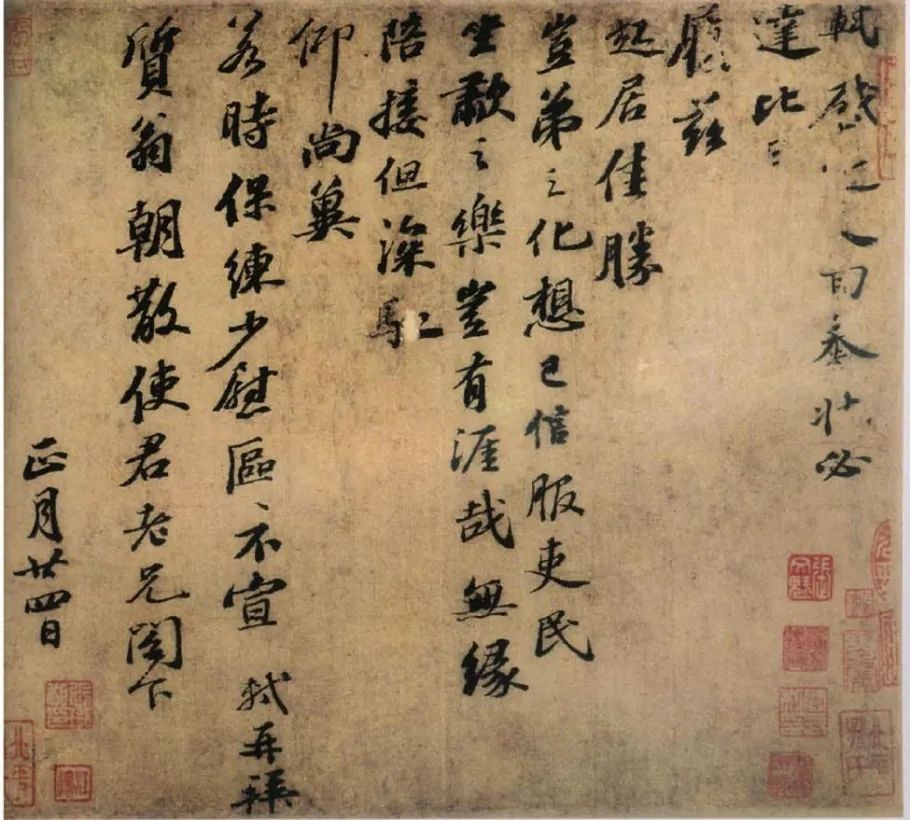 軾啟人回奉狀必
達比
履茲
起居佳勝
豈弟之化想已信服吏民
坐歗之樂豈有涯哉無緣
陪接但深馳
仰尚冀
若時保練少慰區〻不宣 軾再拜
質翁朝散使君老兄閤下
正月廿四日